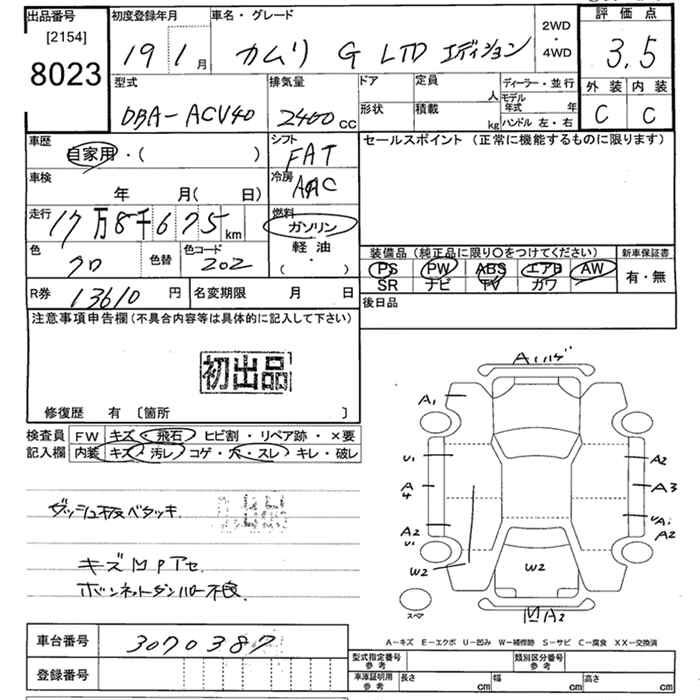 出品番号 初度登録年月 車名・グレード 2WD・4WD 評価点
[2154]
8023
19 1月 カムリ G LTD エディション 3.5
型式 排気量 ドア 定員 人 ディーラー・並行 外装 内装
形状 積載 kg モデル年式 年 ハンドル 左・右
DBA-ACV40 2400 CC C C
車歴 シフト セールスポイント (正常に機能するものに限ります)
自家用・( ) FAT
車検 年 月( 日) 冷房 AAC
走行 17万8千675km 燃料 ガソリン 軽油 (・)
色 クロ 色替 色コード 202
装備品 (純正品に限り○をつけてください) 新車保証書
PS PW ABS エアB AW 有・無
SR ナビ TV カワ
R券 13610円 名変期限 月 日 後日品
注意事項申告欄 (不具合内容等は具体的に記入して下さい)
初出品
修復歴 有 〔箇所 〕
検査員 FW キズ・飛石 ヒビ割・リペア跡・×要
記入欄 内装 キズ・汚レ・コゲ・穴・スレ・キレ・破レ
ダッシュ板ベタツキ
キズ MPアセ
ボンネットダンパー不良
Aハゲ
A1
U1 A2
A4 A3
A2 U1 UA1 A2
W2 W2
スペア MA2
A-キズ E-エクボ U-凹み W-補修跡 S-サビ C-腐食 XX-交換済
車台番号 3070387
登録番号
型式指定番号 参考 類別区分番号 参考
車庫証明用 参考 長さ cm 幅 cm 高さ cm